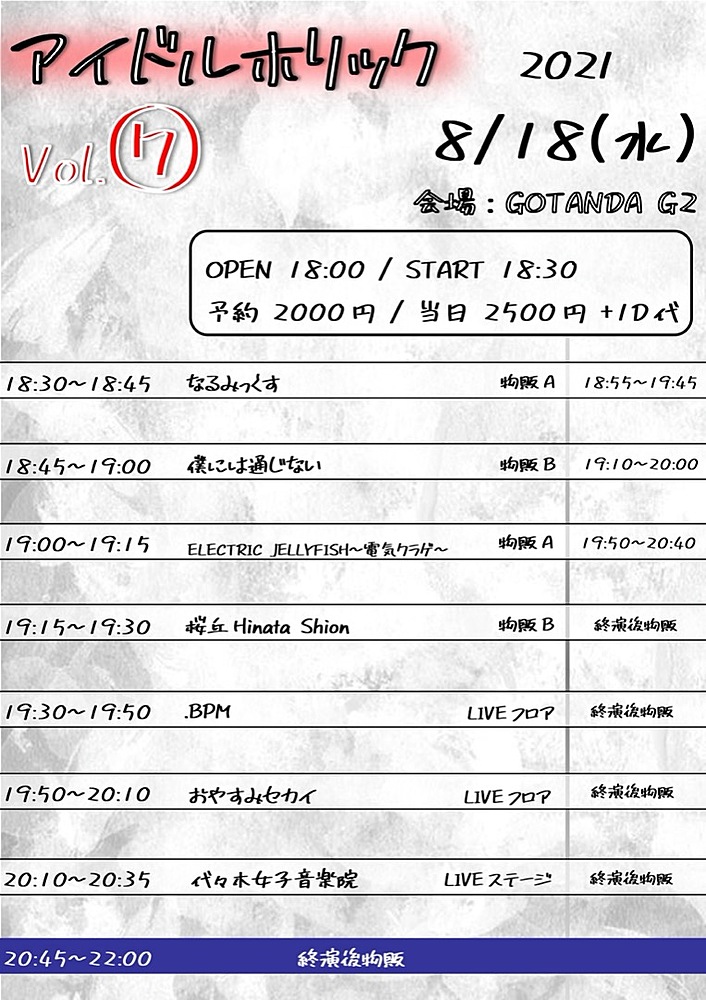 アイドルホリック
2021
Vol.⑦
8/18(水)
会場：GOTANDA G2
OPEN 18:00 / START 18:30
予約 2000円 / 当日 2500円 +1D代
18:30～18:45 なるみっくす 物販A 18:55～19:45
18:45～19:00 僕には通じない 物販B 19:10～20:00
19:00～19:15 ELECTRIC JELLYFISH～電気クラゲ～ 物販A 19:50～20:40
19:15～19:30 桜丘Hinata Shion 物販B 終演後物販
19:30～19:50 .BPM LIVEフロア 終演後物販
19:50～20:10 おやすみセカイ LIVEフロア 終演後物販
20:10～20:35 代々木女子音楽院 LIVEステージ 終演後物販
20:45～22:00 終演後物販